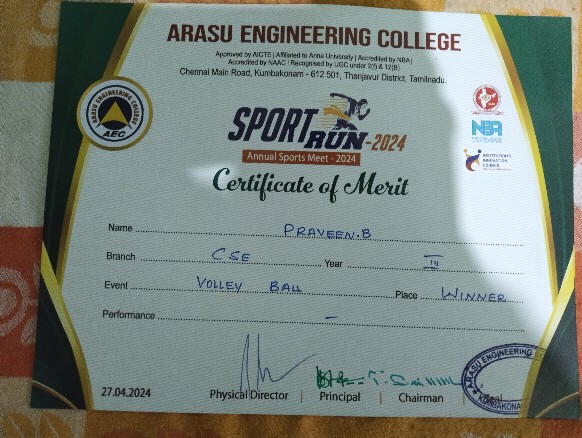 ARASU ENGINEERING COLLEGE
Approved by AICTE | Affiliated to Anna University | Accredited by NBA |
Accredited by NAAC | Recognised by UGC under 2(f) & 12(B)
Chennai Main Road, Kumbakonam - 612 501, Thanjavur District, Tamilnadu.
ARASU ENGINEERING COLLEGE
AEC
NBA
INSTITUTION'S
INNOVATION
COUNCIL
SPORT
RUN-2024
Annual Sports Meet - 2024
Certificate of Merit
Name PRAVEEN.B
Branch CSE Year III
Event VOLLEY BALL Place WINNER
Performance -
27.04.2024
Physical Director | Principal | Chairman |
ARASU ENGINEERING
KUMBAKONA